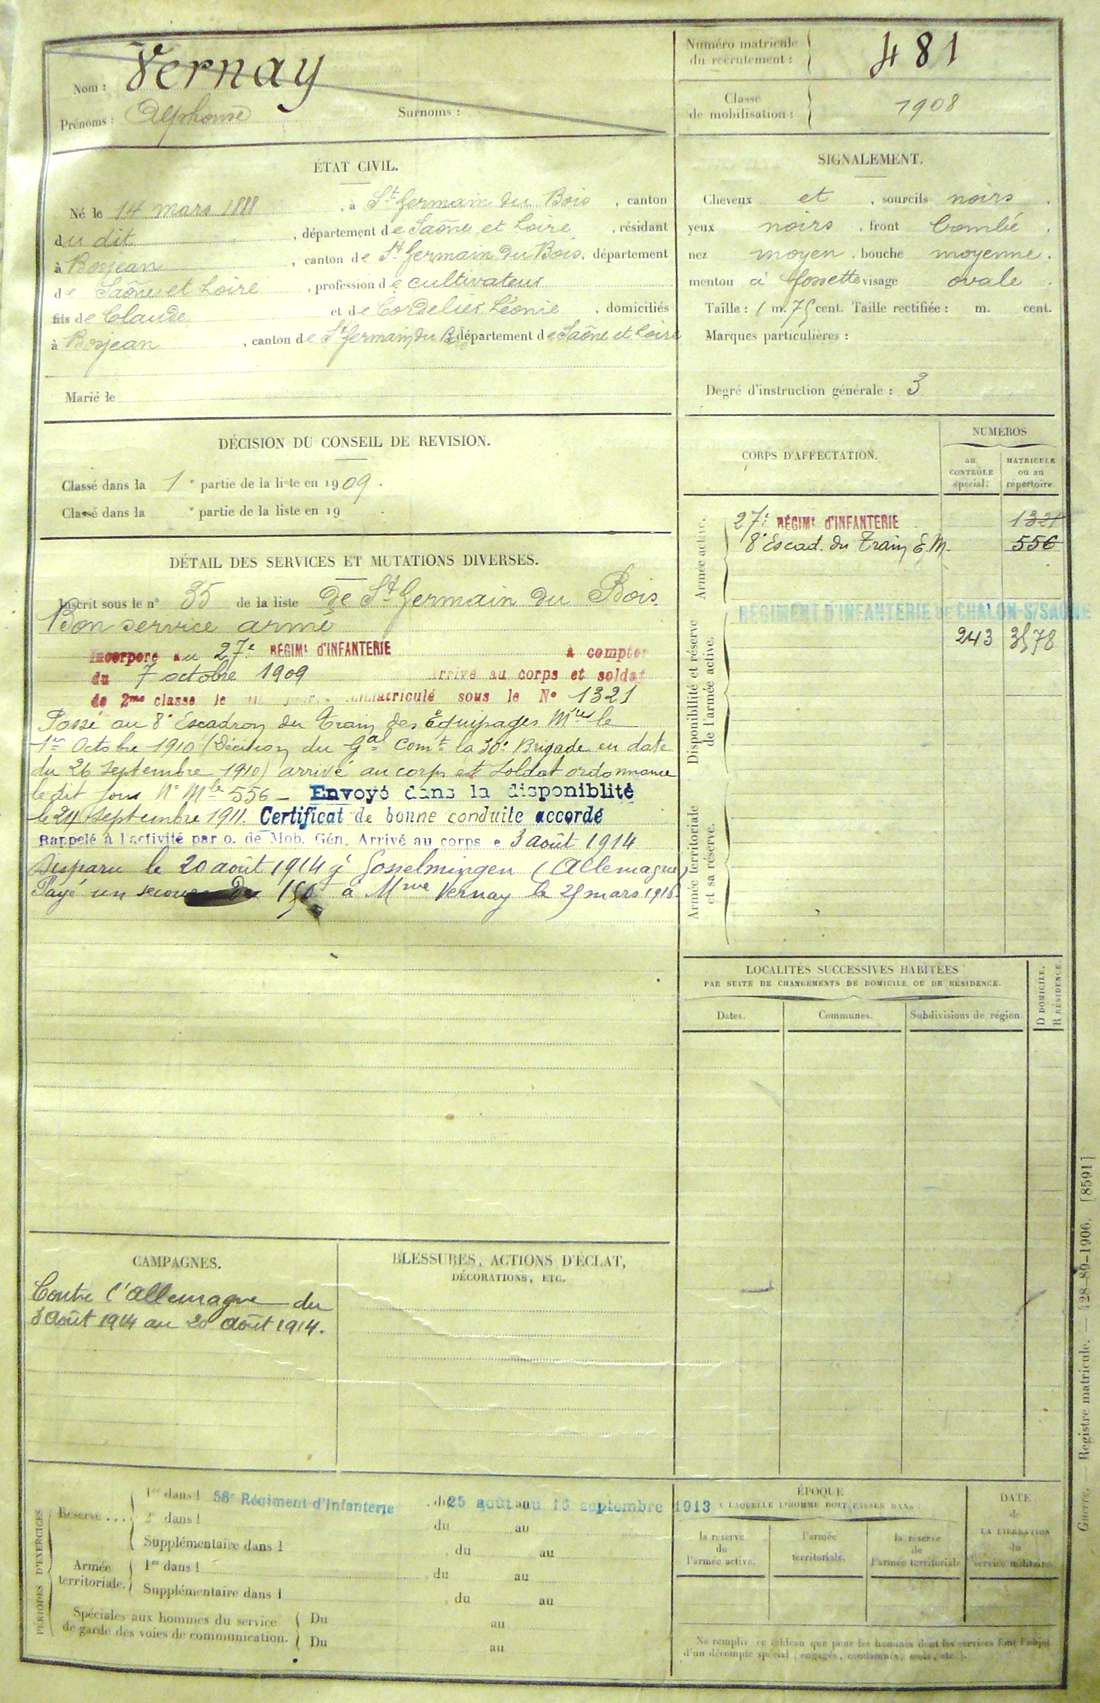 Nom : Vernay
Prénoms : Alphonse Surnoms :
Numéro matricule du recrutement : 481
Classe de mobilisation : 1908
ÉTAT CIVIL.
Né le 14 mars 1888, à St Germain du Bois, canton
du dit, département de Saône et Loire, résidant
à Bosjean, canton de St Germain du Bois, département
de Saône et Loire, profession de cultivateur
fils de Claude et de Cordelier Léonie, domiciliés
à Bosjean, canton de St Germain du B département de Saône et Loire
Marié le
SIGNALEMENT.
Cheveux et, sourcils noirs.
yeux noirs, front bombé.
nez moyen, bouche moyenne.
menton à fossette visage ovale.
Taille : 1 m. 75 cent. Taille rectifiée : m. cent.
Marques particulières :
Degré d'instruction générale : 3
DÉCISION DU CONSEIL DE REVISION.
Classé dans la 1e partie de la liste en 1909.
Classé dans la e partie de la liste en 19
CORPS D'AFFECTATION.
NUMÉROS
au CONTRÔLE spécial.
MATRICULE ou au répertoire.
Armée active.
27e RÉGIMt D'INFANTERIE 1321
8e Escad. du Train E. M. 556
Disponibilité et réserve de l'armée active.
RÉGIMENT D'INFANTERIE DE CHALON-S/SAÔNE
243 3578
Armée territoriale et sa réserve.
DÉTAIL DES SERVICES ET MUTATIONS DIVERSES.
Inscrit sous le n° 35 de la liste de St Germain du Bois.
Bon service armé
Incorporé au 27e RÉGIMt D'INFANTERIE à compter
du 7 octobre 1909 arrivé au corps et soldat
de 2me classe le immatriculé sous le N° 1321
Passé au 8e Escadron du Train des Equipages Mres le
1er Octobre 1910 (Décision du Gal Comt la 30e Brigade en date
du 26 septembre 1910) arrivé au corps et soldat ordonnance
le dit jour N° Mle 556 - Envoyé dans la disponiblité
le 24 septembre 1911. Certificat de bonne conduite accordé
Rappelé à l'activité par o. de Mob. Gén. Arrivé au corps e 3 août 1914
Disparu le 20 août 1914 à Gosselmingen (Allemagne)
Payé un secours de 150 à Mme Vernay le 25 mars 1916.
LOCALITÉS SUCCESSIVES HABITÉES
PAR SUITE DE CHANGEMENTS DE DOMICILE OU DE RÉSIDENCE.
Dates. Communes. Subdivisions de région.
D DOMICILE.
R RÉSIDENCE
CAMPAGNES.
Contre l'Allemagne du
3 Août 1914 au 20 août 1914.
BLESSURES, ACTIONS D'ÉCLAT,
DÉCORATIONS, ETC.
PÉRIODES D'EXERCICES
Réserve ...
1re dans l 56e Régiment d'Infanterie, du 25 août au 16 septembre 1913
2e dans l du au
Supplémentaire dans l, du au
Armée territoriale.
1re dans l, du au
Supplémentaire dans l, du au
Spéciales aux hommes du service
de garde des voies de communication.
Du au
Du au
ÉPOQUE
À LAQUELLE L'HOMME DOIT PASSER DANS
la réserve de l'armée active.
l'armée territoriale.
la réserve de l'armée territoriale
DATE
de
LA LIBÉRATION
du
service militaire.
Ne remplir ce tableau que pour les hommes dont les services font l'objet
d'un décompte spécial (engagés, condamnés, omis, etc.).
Guerre. — Registre matricule. — 128-89-1906. [8591]